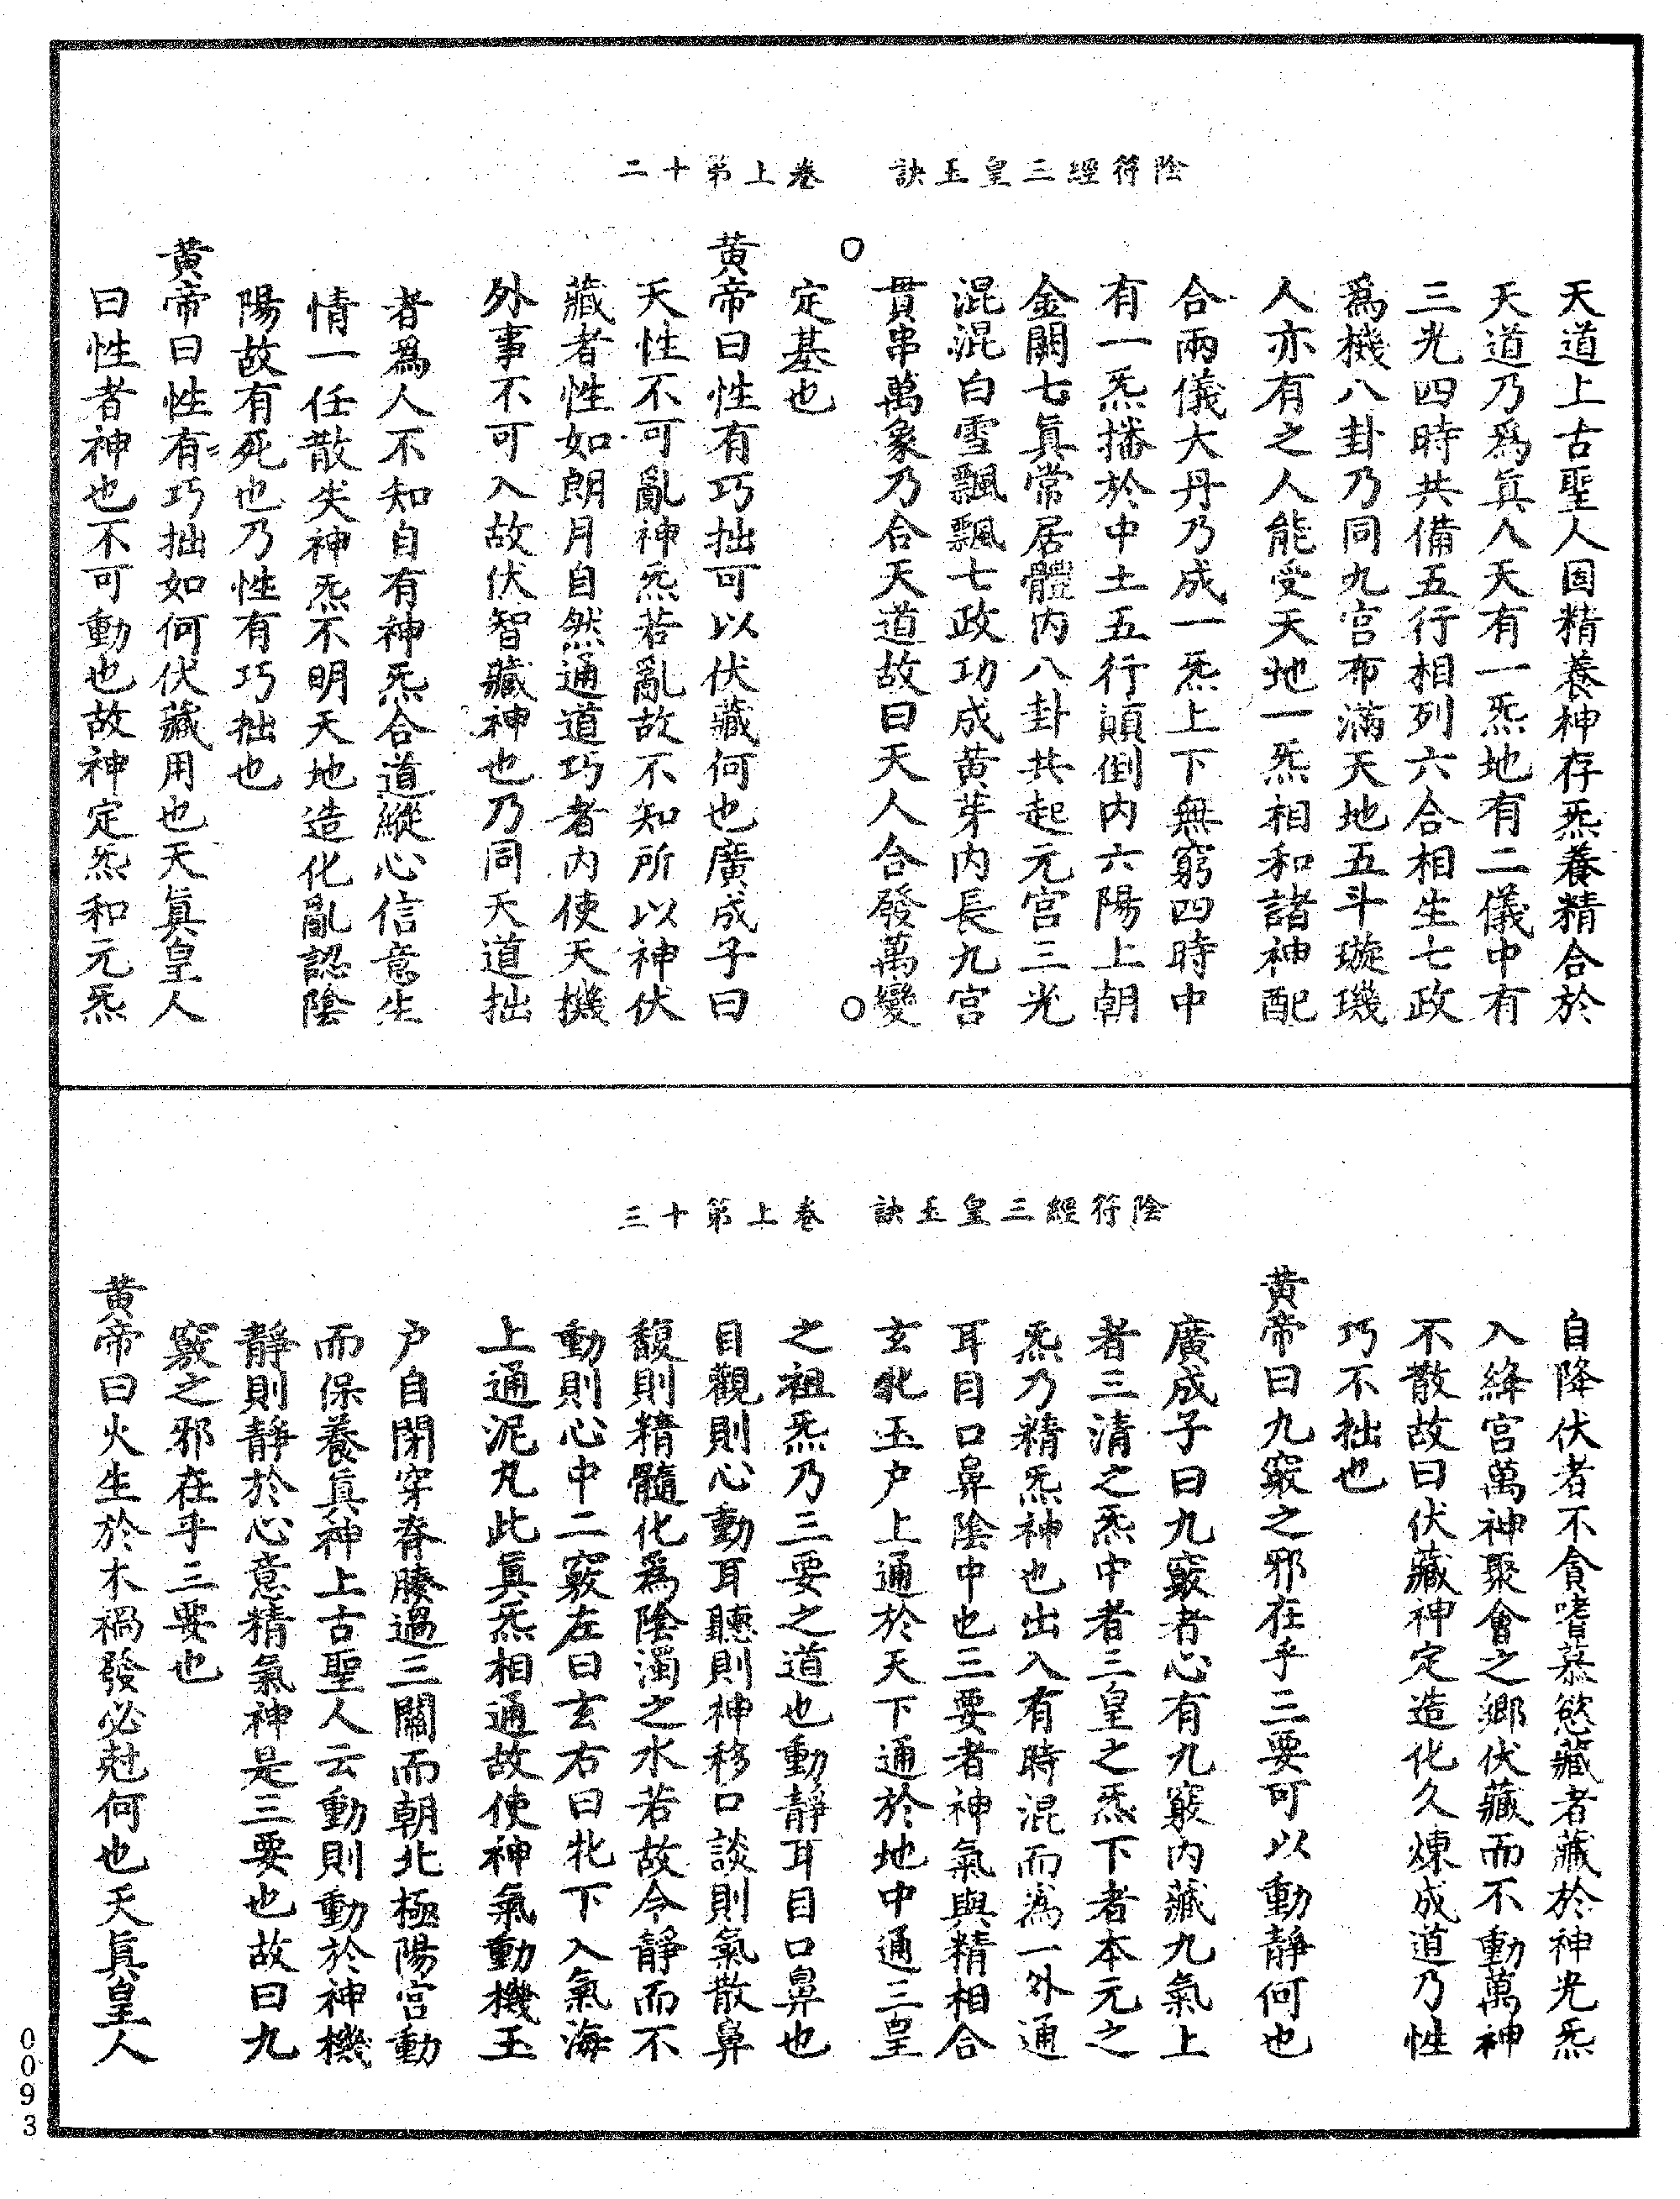 陰符經三皇玉訣　卷上第十二
天道上古聖人因精養神存炁養精合於
天道乃爲真人天有一炁地有二儀中有
三光四時共備五行相列六合相生七政
爲機八卦乃同九宮布滿天地五斗璇璣
人亦有之人能受天地一炁相和諸神配
合兩儀大丹乃成一炁上下無窮四時中
有一炁播於中土五行顛倒內六陽上朝
金闕七真常居體內八卦共起元宮三光
混混白雪飄飄七政功成黄芽內長九宮
貫串萬象乃合天道故曰天人合發萬變
定基也
黄帝曰性有巧拙可以伏藏何也廣成子曰
天性不可亂神炁若亂故不知所以神伏
藏者性如朗月自然通道巧者內使天機
外事不可入故伏智藏神也乃同天道拙
者爲人不知自有神炁合道縱心信意生
情一任散失神炁不明天地造化亂認陰
陽故有死也乃性有巧拙也
黄帝曰性有巧拙如何伏藏用也天真皇人
曰性者神也不可動也故神定炁和元炁
陰符經三皇玉訣　卷上第十三
自降伏者不貪嗜慕慾藏者藏於神光炁
入絳宮萬神聚會之鄉伏藏而不動萬神
不散故曰伏藏神定造化久煉成道乃性
巧不拙也
黄帝曰九竅之邪在乎三要可以動靜何也
廣成子曰九竅者心有九竅內藏九氣上
者三清之炁中者三皇之炁下者本元之
炁乃精炁神也出入有時混而爲一外通
耳目口鼻陰中也三要者神氣與精相合
玄牝玉户上通於天下通於地中通三皇
之祖炁乃三要之道也動靜耳目口鼻也
目觀則心動耳聽則神移口談則氣散鼻
馥則精髓化爲陰濁之水若故今靜而不
動則心中二竅左曰玄右曰牝下入氣海
上通泥丸此真炁相通故使神氣動機玉
户自閉穿脊腠過三關而朝北極陽宮動
而保養真神上古聖人云動則動於神機
靜則靜於心意精氣神是三要也故曰九
竅之邪在乎三要也
黄帝曰火生於木禍發必尅何也天真皇人
0093